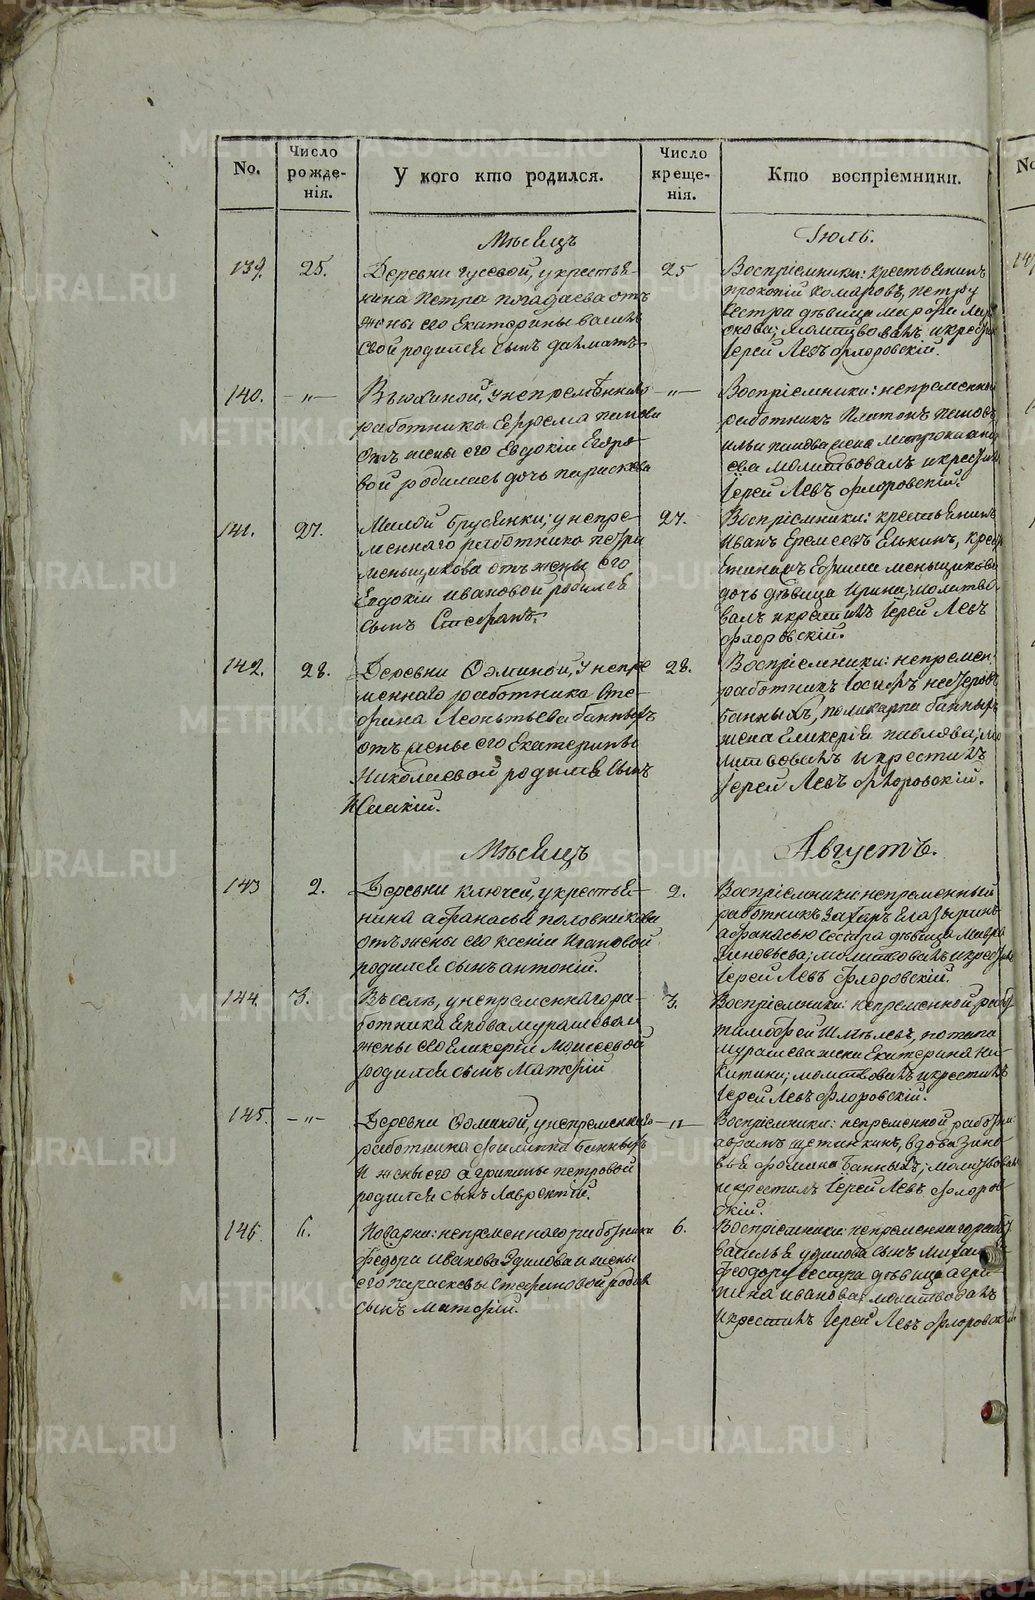 No.
Число рожде-
нія.
У кого кто родился.
Число креще-
нія.
Кто воспріемники.
Мѣсяцъ
Іюль.
139.
25.
Деревни Гусевой, у крестья-
нина Петра отъ
жены его Екатерины Василь
евой родился сынъ Далматъ
25
Воспріемники: крестьянинъ
Прокопій Комаровъ, Петру
сестра дѣвица
молитвовалъ и крести
Іерей Левъ Флоровскій.
140.
— „ —
у непремѣннаго
работника Ефрема Попова
отъ жены его Евдокіи Егоро-
вой родилась дочь Парасковья
— „ —
Воспріемники: непременный
работникъ Платонъ Попов
Ильи Попова жена
молитвовалъ и крестилъ
Іерей Левъ Флоровскій.
141.
27.
Малой Брусянки; у непре-
меннаго работника Петра
Меньщикова отъ жены его
Евдокіи Ивановой родился
сынъ Стефанъ.
27.
Воспріемники: крестьянинъ
Иванъ Еремеевъ Елькинъ, крес
Ефима Меньщикова
дочь дѣвица Ирина; молитво-
валъ и крестилъ Іерей Левъ
Флоровскій.
142.
28.
Деревни у непре
меннаго работника Сте-
фана Леонтьева Банныхъ
отъ жены его Екатерины
Николаевой родился сынъ
28.
Воспріемники: непремен.
работникъ Іосифъ
Банныхъ, Поликарпа Банныхъ
жена Гликерія Павлова; мо
литвовалъ и крестилъ
Іерей Левъ Флоровскій.
Мѣсяцъ
Августъ.
143
2.
Деревни Ключей, у крестья-
нина Афанасья Половникова
отъ жены его Ксеніи Ивановой
родился сынъ Антоній.
2.
Воспріемники: непременный
работникъ Захаръ Глазыринъ
Афанасью сестра дѣвица Мавра
Зиновьева; молитвовалъ и крестилъ
Іерей Левъ Флоровскій.
144.
3.
Въ селѣ, у непременнаго ра-
ботника Якова Мурашева и
жены его Гликеріи Моисеевой
родился сынъ Матѳій
3.
Воспріемники: непременной рабо
Тимофей Шмелевъ, Потапа
Мурашева жена Екатерина Ни-
китина; молитвовалъ и крестилъ
Іерей Левъ Флоровскій.
145.
— „ —
Деревни у непременнаго
работника Филиппа Банныхъ
и жены его Агрипины Петровой
родился сынъ Лаврентій.
— „ —
Воспріемники: непременной работни
Абрамъ Щетинкинъ, вдова Зино
вья Фомина Банныхъ; молитвовалъ
и крестилъ Іерей Левъ Флоров-
скій.
146.
6.
непременнаго работника
Федора Иванова и жены
его Парасковьи Стефановой родился
сынъ Матѳій.
6.
Воспріемники: непременнаго работ
Василья сынъ Михаи
Феодору сестра дѣвица Агри-
пина Иванова; молитвовалъ
и крестилъ Іерей Левъ Флоровскій
METRIKI.GASO-URAL.RU